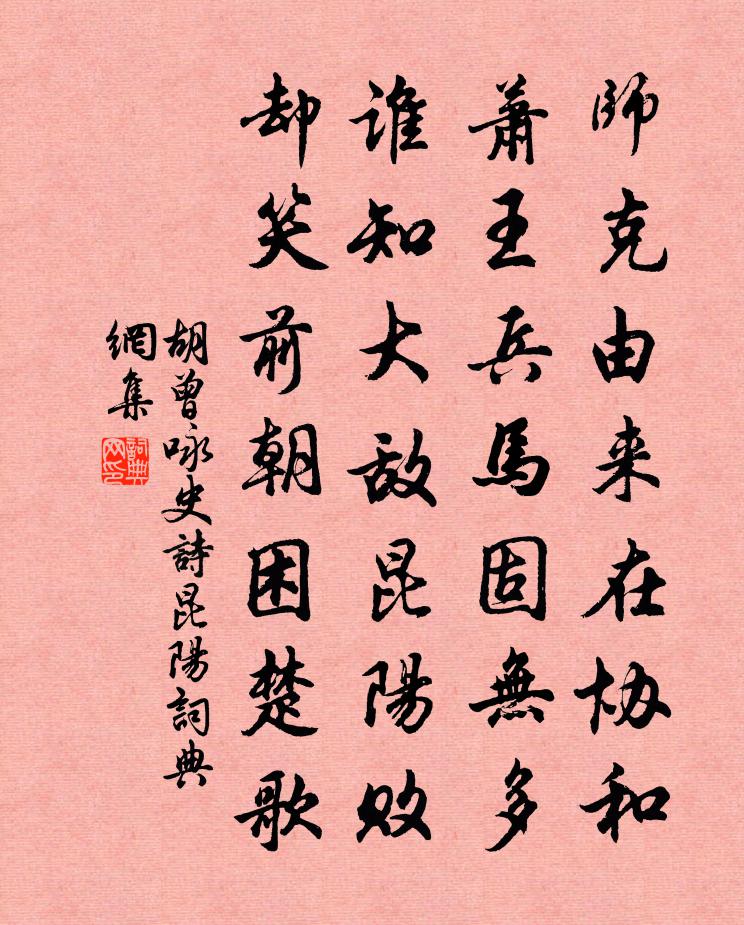 師克由来在协和
萧王兵馬固無多
谁知大敌昆陽败
却笑前朝困楚歌
胡曾咏史詩昆陽詞典
網集
詞典
网印